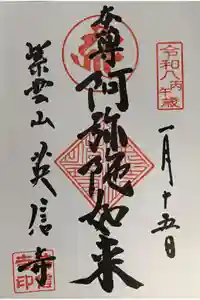 令和八丙午歳
一月十五日
本尊
阿弥陀如来
紫雲山 英信寺